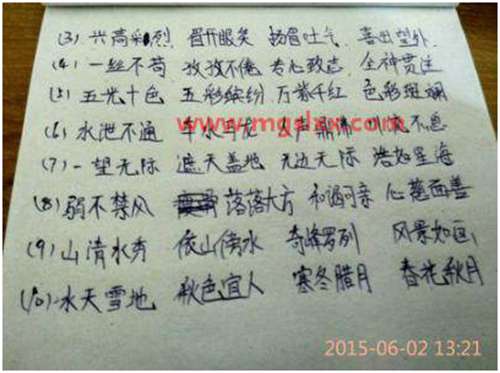 (3) 兴高采烈 眉开眼笑 扬眉吐气 喜出望外
(4) 一丝不苟 孜孜不倦 专心致志 全神贯注
(5) 五光十色 五彩缤纷 万紫千红 色彩斑斓
(6) 水泄不通 车水马龙
www.mgslxx.com
(7) 一望无际 遮天盖地 无边无际 浩如星海
(8) 弱不禁风 落落大方 和谒可亲 心慈面善
(9) 山清水秀 依山傍水 奇峰罗列 风景如画
(10) 水天雪地 秋色宜人 寒冬腊月 春花秋月
2015-06-02 13:21